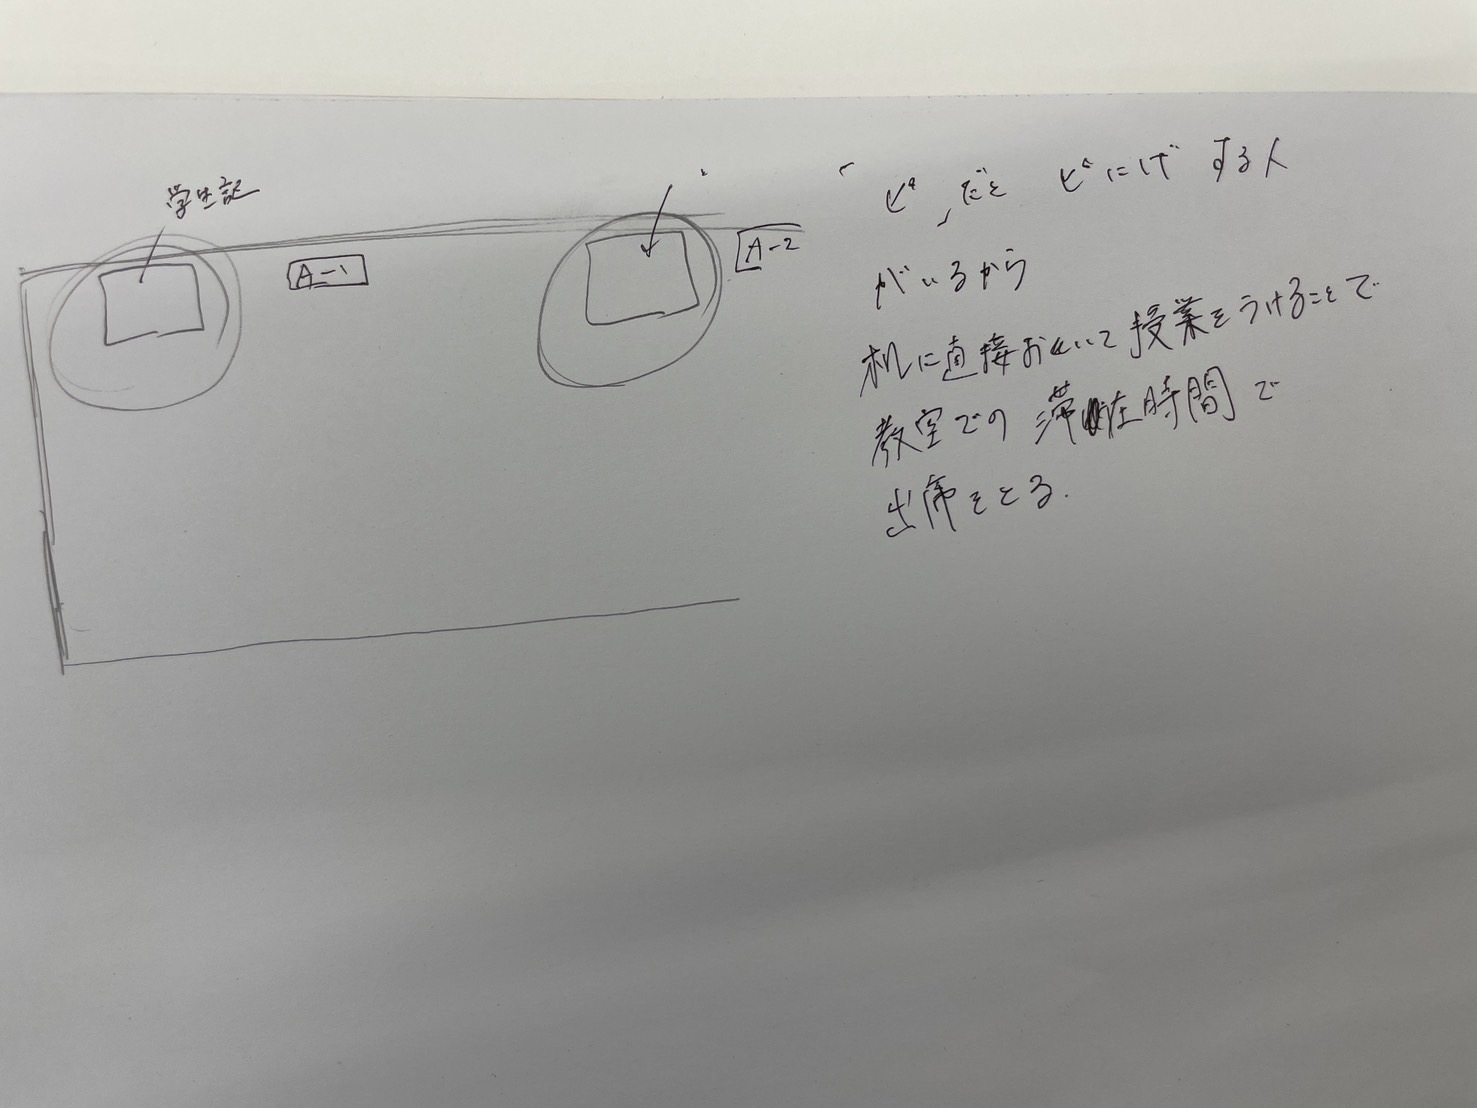 学生記
A-1
A-2
「ピ」だと ピにげ する人
がいるから
机に直接おいて授業をうけることで
教室での滞在時間で
出席をとる.